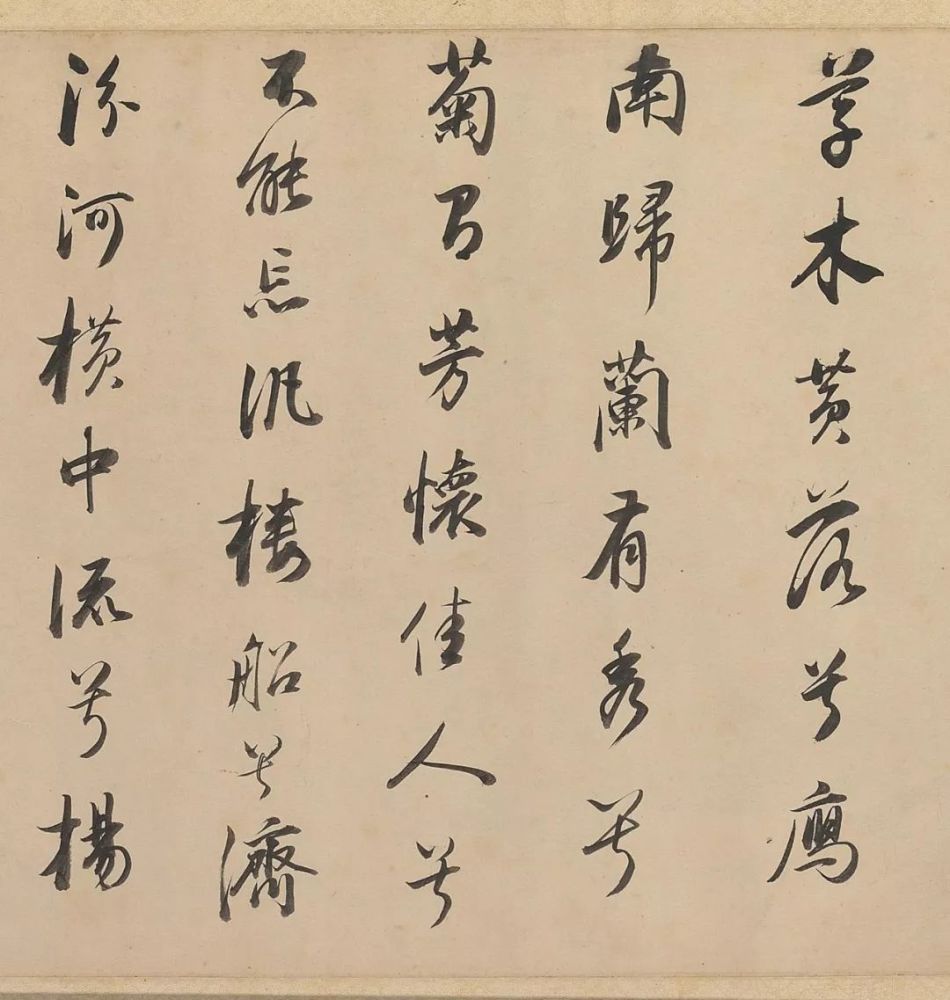 草木黄落兮鴈
南歸蘭有秀兮
菊有芳懷佳人兮
不能忘汎樓船兮濟
汾河橫中流兮
揚